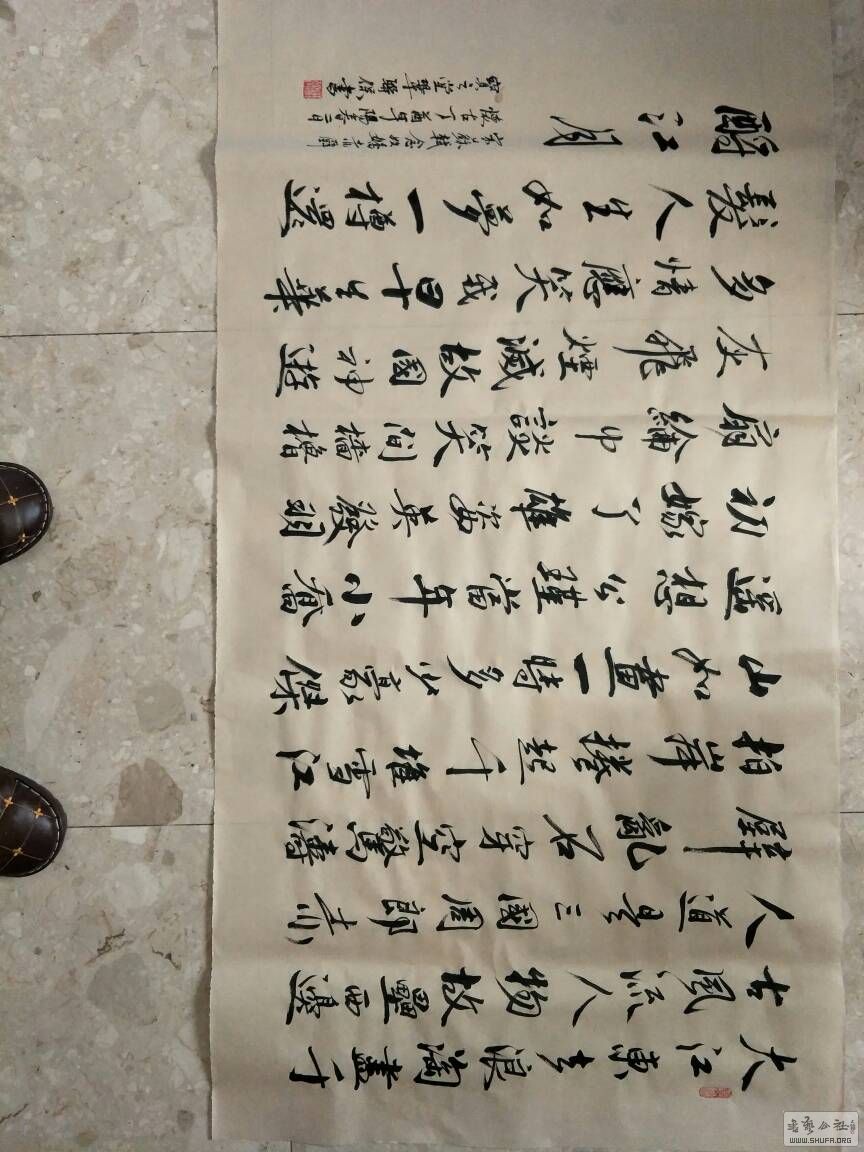 大江東去浪淘盡千
古風流人物故壘西邊
人道是三國周郎赤
壁亂石穿空驚濤
拍岸捲起千堆雪江
山如畫一時多少豪傑
遙想公瑾當年小喬
初嫁了雄姿英發羽
扇綸巾談笑間檣櫓
灰飛煙滅故國神遊
多情應笑我早生華
髮人生如夢一樽還
酹江月
宋蘇軾念奴嬌赤壁
懷古丁酉年陽春二日
堂華聯書
書藝公社
WWW.SHUFA.ORG